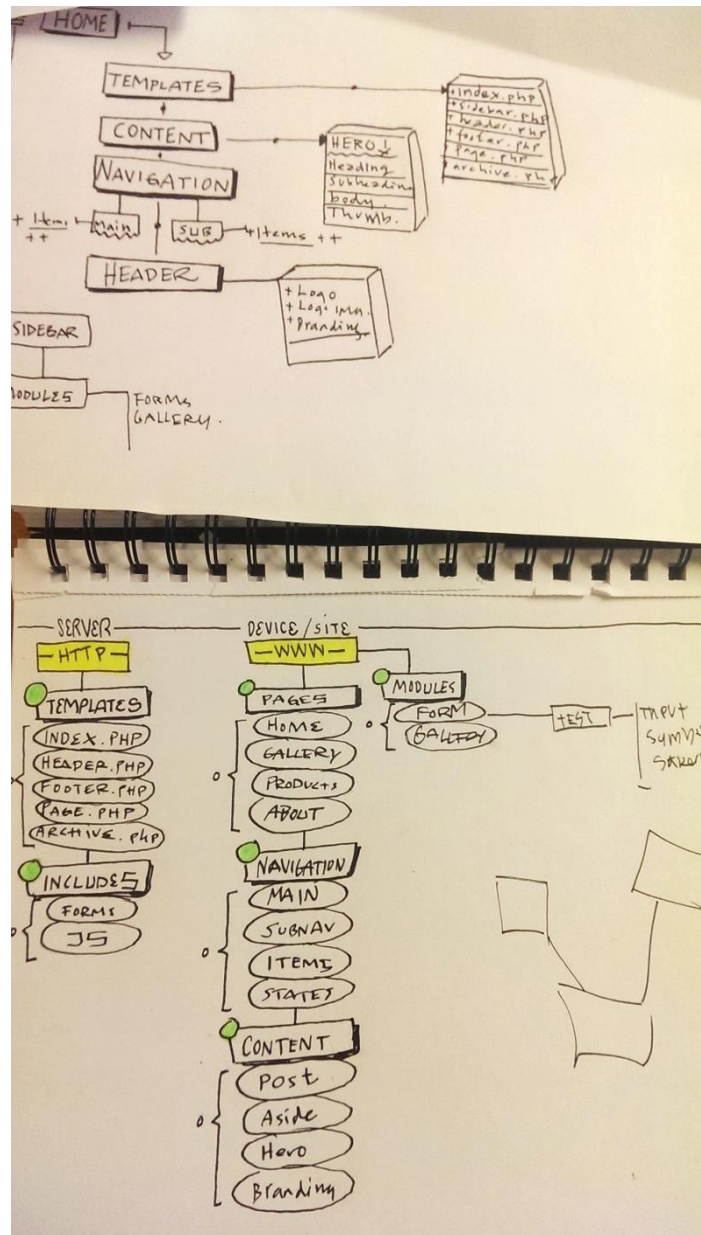 HOME
TEMPLATES
+index.php
+sidebar.php
+header.php
+footer.php
+page.php
+archive.ph
CONTENT
HERO 1
Heading
Subheading
body.
Thumb.
NAVIGATION
+ Item
++
Main
SUB
+Items ++
HEADER
+ Logo
+ Logo
+ Branding
SIDEBAR
MODULES
FORMS
GALLERY.
SERVER
DEVICE/SITE
- HTTP -
- WWW -
TEMPLATES
INDEX.PHP
HEADER.PHP
FOOTER.PHP
PAGE.PHP
ARCHIVE.PHP
INCLUDES
FORMS
JS
PAGES
HOME
GALLERY
PRODUCTS
ABOUT
NAVIGATION
MAIN
SUBNAV
ITEMS
STATES
CONTENT
Post
Aside
Hero
Branding
MODULES
FORM
GALLERY
TEST
INPUT